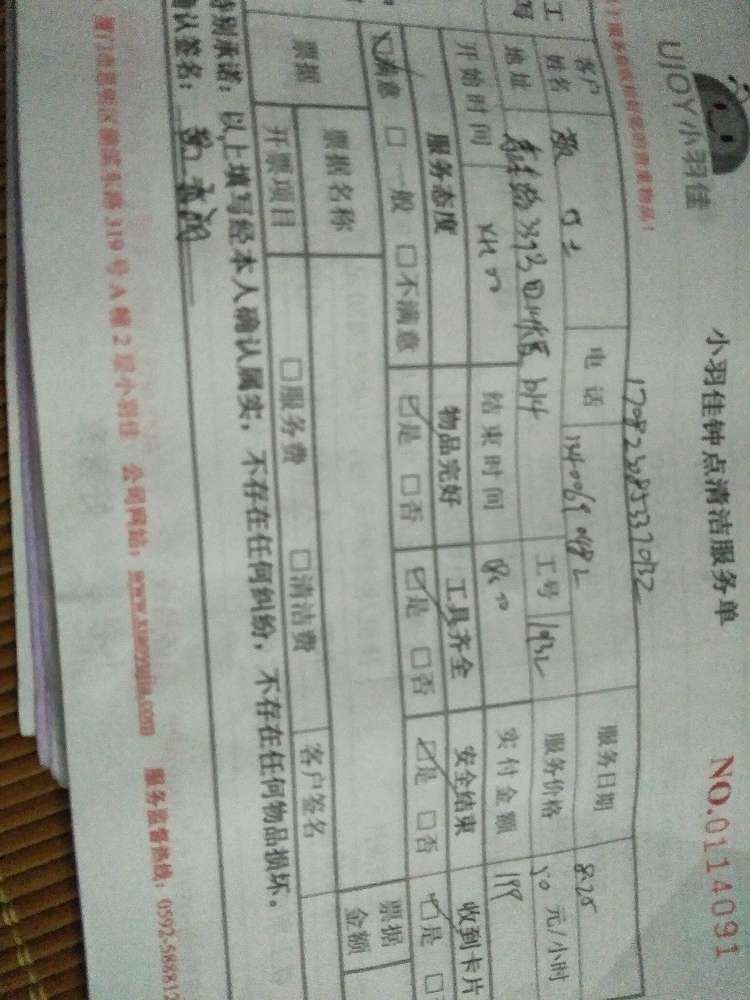 UJOY小羽佳
小羽佳钟点清洁服务单
NO.0114091
17082385337032
客户
姓名
电话
服务日期
8.25
地址
工号
1932
服务价格
50 元/小时
开始时间
结束时间
实付金额
199
服务态度
物品完好
工具齐全
安全结束
收到卡片
☑满意 □一般 □不满意
☑是 □否
☑是 □否
☑是 □否
☑是
票据
票据名称
票据
金额
开票项目
□服务费 □清洁费
客户签名
特别承诺:以上填写经本人确认属实,不存在任何纠纷,不存在任何物品损坏。
确认签名:
319号A幢2层小羽佳 公司网站:www.xiaoyujia.com 服务监督热线:0592-588812